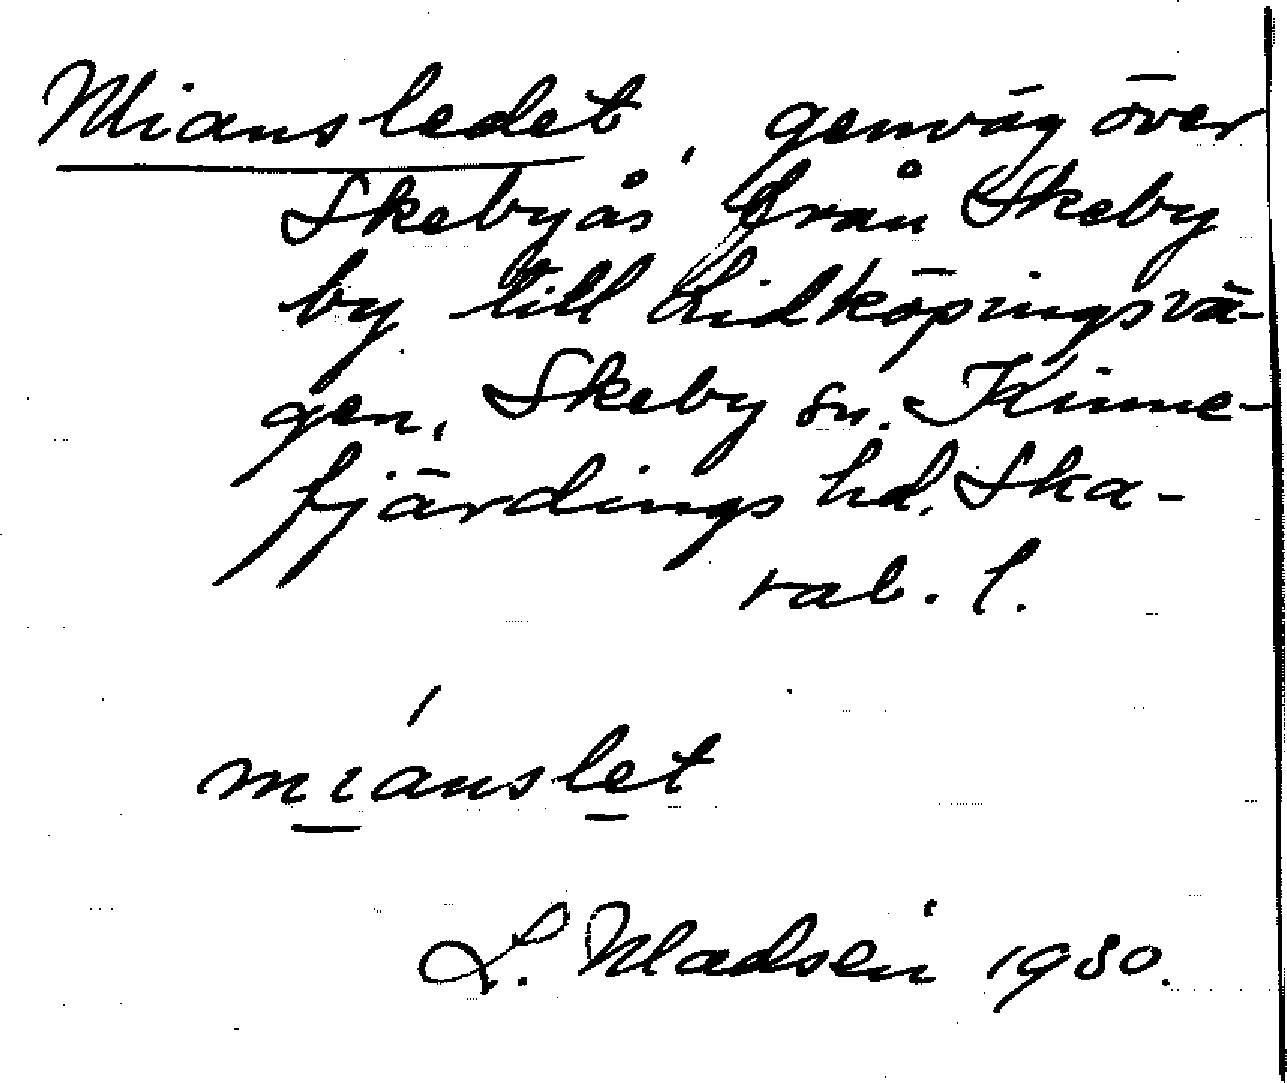 Miansledet, genväg över
Skebyås från Skeby
by till Lidköpingsvä-
gen, Skeby sn. Kinne-
fjärdings hd. Ska-
rab. l.
mianslet
L. Madsén 1930.